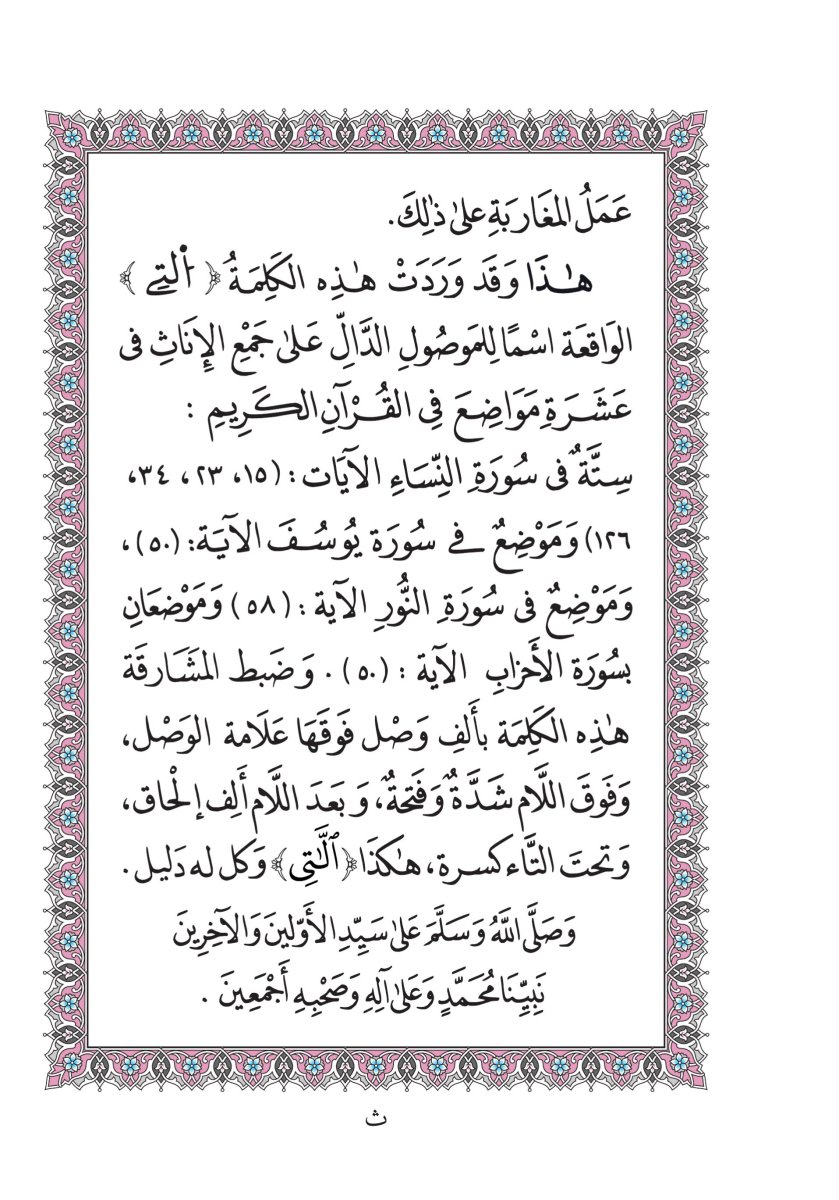 عَمَلُ المغَارِبَةِ عَلىٰ ذٰلِكَ.
هٰذَا وَقَد وَرَدَتْ هٰذِه الكَلِمَةُ ﴿ ألتے ﴾
الوَاقِعَة اسْمًا لِلمَوصُولِ الدَّالِّ عَلىٰ جَمْعِ الإِنَاثِ فى
عَشَرَةِ مَوَاضِعَ فِى القُرْآنِ الكَرِيمِ :
سِتَّةٌ فى سُورَةِ النِّسَاءِ الآيَات : (١٥، ٢٣ ، ٣٤،
١٢٦) وَمَوْضِعٌ فے سُورَة يُوسُفَ الآيَة: (٥٠) ،
وَمَوْضِعٌ فى سُورَةِ النُّورِ الآية : (٥٨) وَمَوْضعَانِ
بسُورَة الأَحزابِ الآية : (٥٠) . وَضَبط المشَارقَة
هٰذِه الكَلِمَة بأَلفِ وَصْل فَوقَهَا عَلَامة الوَصْل،
وَفَوقَ اللَّام شَدَّةٌ وَفَتحةٌ، وَبَعدَ اللَّام أَلِف إلْحاق،
وَتحتَ التَّاء كسرة، هٰكذَا ﴿ٱلَّٰتِى﴾ وَكل له دَليل .
وَصَلَّى اللَّهُ وَسَلَّمَ عَلىٰ سَيِّدِ الأَوَّلينَ وَالآخِرِينَ
نَبِيِّنَا مُحَمَّدٍ وَعَلىٰ آلِهِ وَصَحْبِهِ أَجْمَعِينَ .
ث